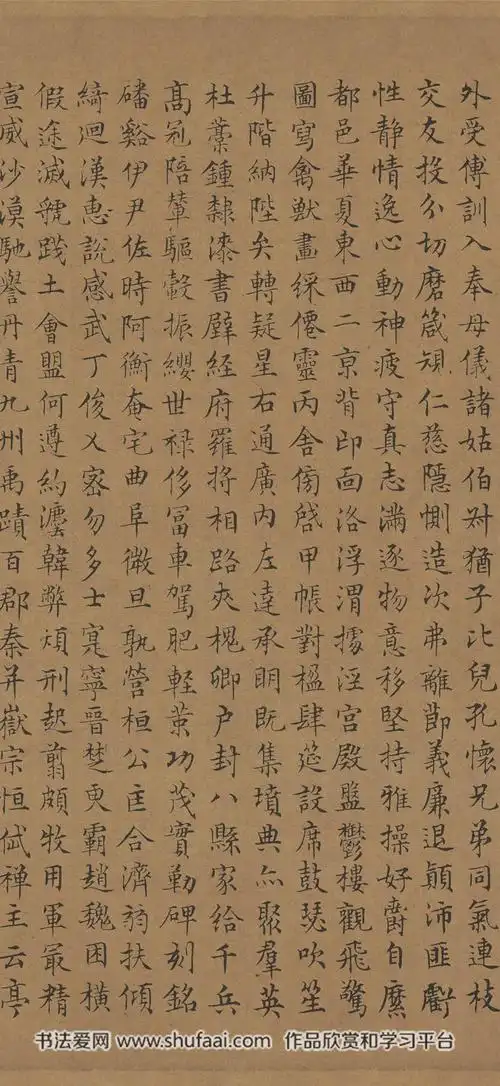 外受傅訓入奉母儀諸姑伯叔猶子比兒孔懷兄弟同氣連枝
交友投分切磨箴規仁慈隱惻造次弗離節義廉退顛沛匪虧
性靜情逸心動神疲守真志滿逐物意移堅持雅操好爵自縻
都邑華夏東西二京背邙面洛浮渭據涇宮殿盤鬱樓觀飛驚
圖寫禽獸畫綵僊靈丙舍傍啓甲帳對楹肆筵設席鼓瑟吹笙
升階納陛弁轉疑星右通廣內左達承明既集墳典亦聚羣英
杜藁鍾隸漆書壁經府羅將相路夾槐卿户封八縣家給千兵
高冠陪輦驅轂振纓世禄侈富車駕肥輕策功茂實勒碑刻銘
磻谿伊尹佐時阿衡奄宅曲阜微旦孰營桓公匡合濟弱扶傾
綺迴漢惠說感武丁俊乂密勿多士寔寧晉楚更霸趙魏困橫
假途滅虢踐土會盟何遵約灋韓弊煩刑起翦頗牧用軍最精
宣威沙漠馳譽丹青九州禹蹟百郡秦并嶽宗恒岱禪主云亭
书法爱网 www.shufaai.com 作品欣赏和学习平台